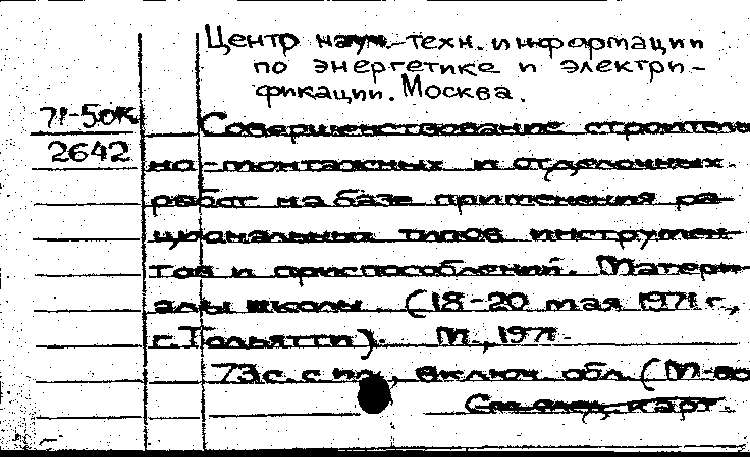 Центр науч.-техн. информации
по энергетике и электри-
фикации. Москва.
71-50к
Совершенствование строитель
2642
но-монтажных и отделочных
работ на базе применения ра-
циональных типов инструмен-
тов и приспособлений. Матери-
алы школы. (18-20 мая 1971 г.,
г. Тольятти). М., 1971.
73 с. с ил., включ. обл. (М-во
См. след. карт.